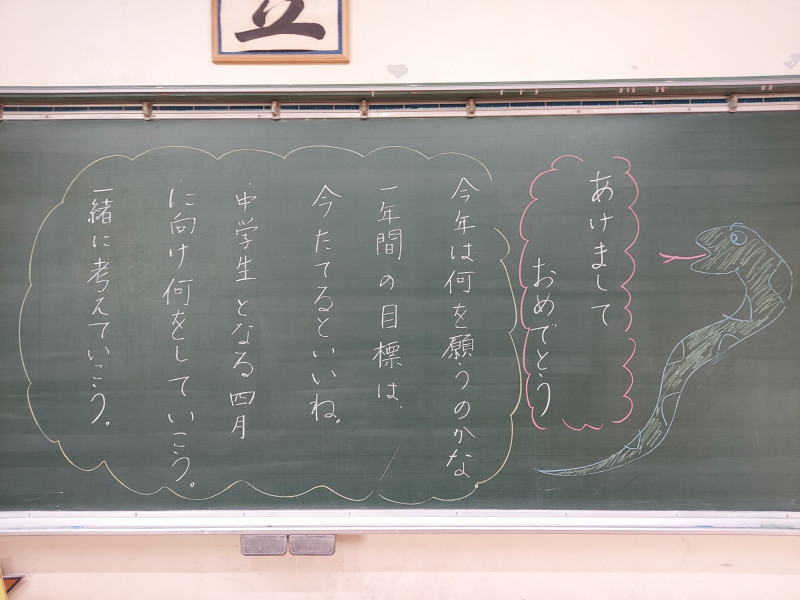 立
あけまして
おめでとう
今年は何を願うのかな。
一年間の目標は、
今たてるといいね。
中学生となる四月
に向け何をしていこう。
一緒に考えていこう。